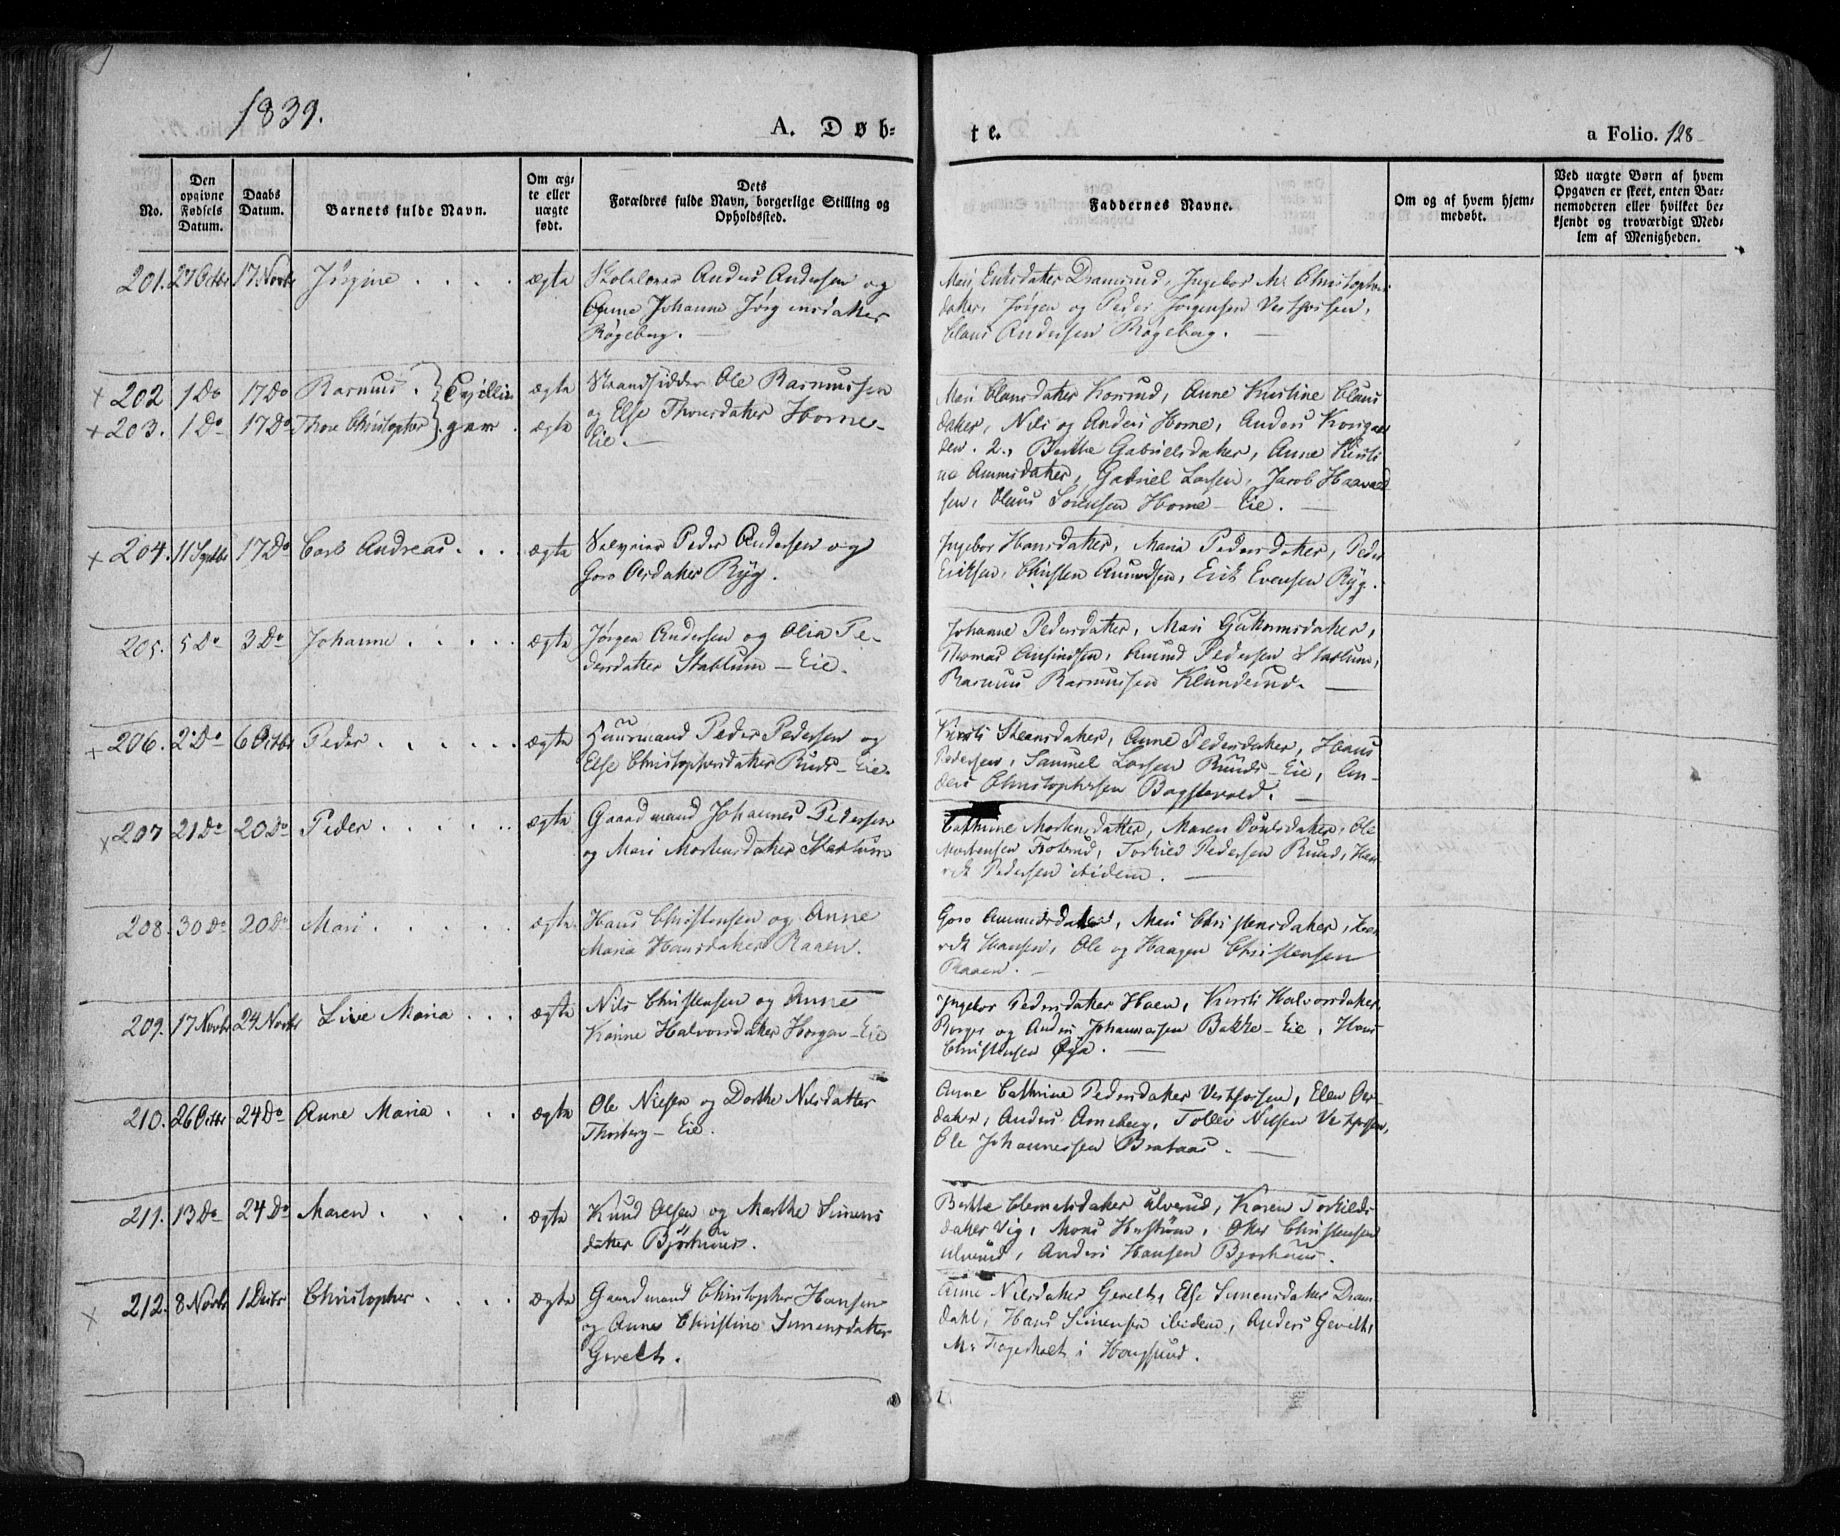 1839.
A. Døb-
te.
a Folio. 128
No.
Den opgivne Fødsels Datum.
Daabs Datum.
Barnets fulde Navn.
Om ægte eller uægte født.
Dets Forældres fulde Navn, borgerlige Stilling og Opholdssted.
Faddernes Navne.
Om og af hvem hjemmedøbt.
Ved uægte Børn af hvem Opgaven er skeet, enten Barnemoderen eller hvilket bekjendt og troværdigt Medlem af Menigheden.
201. 27 Octbr 17 Novbr Jørgine . . . . ægte
Skolelærer Anders Andersen og
Anne Johanne Jørgensdatter
Røgeberg. —
Jørgen og Peder Jørgensen Vestfossen,
Claus Andersen Røgeberg. —
+ 202 1 Do 17 Do Rasmus . } Tvillin ægte
+ 203. 1 Do 17 Do Thore Christopher } ger . ægte
Strandsidder Ole Rasmussen
og Else Thoresdatter Horne-
Eie. —
Mari Clausdatter Korsrud, Anne Kirstine Claus
datter, Nils og Anders Horne, Anders
2., Berthe Gabrielsdatter, Anne Kirsti
ne Amunsdatter, Gabriel Larsen, Jacob Haavald
sen, Claus Sørensen Horne-Eie. —
+ 204. 11 Septbr 17 Do Carl Andreas . . . ægte
Selveier Peder Andersen og
Goro Olesdatter Ryg.
Ingebor Hansdatter, Maria Pedersdatter, Peder
Eriksen, Christen Amundsen, Erik Evensen Ryg.
205. 5 Do 3 Do Johanne . . . . ægte
Jørgen Andersen og Olia Pe-
dersdatter Stablum-Eie.
Johanne Pedersdatter, Mari Guttormsdatter,
Thomas Amundsen, Amund Pedersen Stablum,
Rasmus Rasmussen Klunderud. —
+ 206. 2 Do 6 Octbr Peder . . . . . ægte
Huusmand Peder Pedersen og
Else Christophersdatter Ruds-Eie.
Kirsti Steensdatter, Anne Pedersdatter, Hans
Pedersen, Samuel Larsen Ruuds-Eie, An-
ders Christophersen Bagstevold. —
x 207 21 Do 20 Do Peder . . . . . ægte
Gaardmand Johannes Pedersen
og Mari Mortensdatter Stablum
Cathrine Mortensdatter, Maren Poulsdatter, Ole
Mortensen Fosterud, Torkild Pedersen Ruud, Hen
rik Pedersen ibidem. —
208. 30 Do 20 Do Mari . . . . . ægte
Hans Christensen og Anne
Maria Hansdatter Raaen.
Goro Ammundsdatter, Mari Christensdatter, Hen
rik Hansen, Ole og Haagen Christensen
Raaen. —
209. 17 Novbr 24 Novbr Live Maria . . . ægte
Nils Christensen og Anne
Karine Halvorsdatter Horgen-Eie
Ingebor Pedersdatter Hoen, Kirsti Halvorsdatter,
Borger og Anders Johannessen Bakke-Eie, Hans
Christensen Øya. —
210. 26 Octbr 24 Do Anne Maria . . . ægte
Ole Nielsen og Dorthe Nilsdatter
Thorberg-Eie.
Anne Cathrine Pedersdatter Vestfossen, Elen Ols-
datter, Anders Arneberg, Tollev Nilsen Vestfossen,
Ole Johannessen Brataas. —
211. 13 Do 24 Do Maren . . . . ægte
Knud Olsen og Marthe Simens
datter Bjørhuus.
Berthe Clemetsdatter Ulverud, Karen Torkilds
datter Vig, Mons Hagstrøm, Christensen
Ulverud, Anders Hansen Bjørhuus.
x 212. 8 Novbr 1 Decbr Christopher . . . ægte
Gaardmand Christopher Hansen
og Anne Christine Simensdatter
Gevelt.
Anne Nilsdatter Gevelt, Else Simensdatter Dram-
dahl, Hans Simensen ibidem, Anders Gevelt,
Mr Fagerholt i Hougsund.